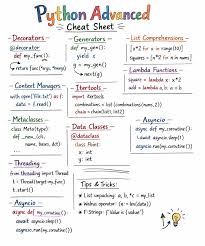 Python Advanced
Cheat Sheet
Decorators
@decorator
def my_func():
return func(*args, *kwargs)
Context Managers
with open("file.txt") as f:
data = f.read()
Metaclasses
class Meta(type):
def __new__(cls,
name, bases, dct):
Threading
from threading import Thread
t.start()
Asyncio
async def my_coroutine():
await asyncio.sleep(1)
asyncio.run(my_coroutine())
Generators
def my_gen():
yield x
g = my_gen()
next(g)
Itertools
import itertools
combinations = list(combinations(nums, 2))
Data Classes
@dataclass
class Point:
x: int
y: int
List Comprehensions
[x**2 for x in range(10)]
Lambda Functions
Asyncio
async def my_coroutine():
await asyncio.sleep(1)
asyncio.run(my_coroutine())
Tips & Tricks:
List unpacking: a, b, *c = my_list
F-Strings: f"Value is {value}"